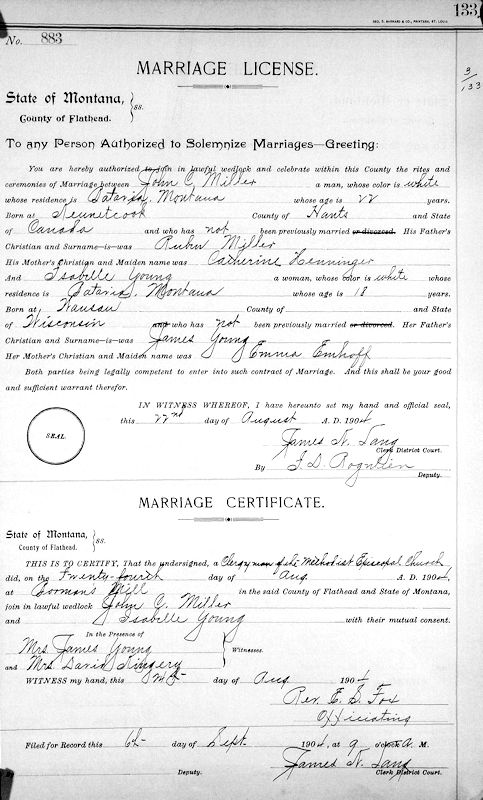 133
GEO. D. BARNARD & CO., PRINTERS, ST. LOUIS
No. 883
3/133
MARRIAGE LICENSE.
State of Montana, } ss.
County of Flathead.
To any Person Authorized to Solemnize Marriages—Greeting:
You are hereby authorized to join in lawful wedlock and celebrate within this County the rites and
ceremonies of Marriage between John C. Miller a man, whose color is white
whose residence is Batavia, Montana whose age is 22 years.
Born at County of Hants and State
of Canada and who has not been previously married or divorced. His Father's
Christian and Surname is—was Rubin Miller
His Mother's Christian and Maiden name was Catherine Henninger
And Isabelle Young a woman, whose color is white whose
residence is Batavia, Montana whose age is 18 years.
Born at Wausau County of and State
of Wisconsin and who has not been previously married or divorced. Her Father's
Christian and Surname—is—was James Young
Her Mother's Christian and Maiden name was Emma Emhoff
Both parties being legally competent to enter into such contract of Marriage. And this shall be your good
and sufficient warrant therefor.
IN WITNESS WHEREOF, I have hereunto set my hand and official seal,
this 22nd day of August A. D. 1904
SEAL.
James N. Lang
Clerk District Court.
By J. D.
Deputy.
MARRIAGE CERTIFICATE.
State of Montana, } ss.
County of Flathead.
THIS IS TO CERTIFY, That the undersigned, a Clergyman of the Methodist Episcopal Church
did, on the Twenty-fourth day of Aug. A. D. 1904,
at Mill in the said County of Flathead and State of Montana,
join in lawful wedlock John C. Miller
and Isabelle Young with their mutual consent.
In the Presence of
Mrs. James Young } Witnesses.
and Mrs. David Kingery
WITNESS my hand, this day of Aug 1904
Rev. E. S. Fox
Officiating
Filed for Record this 6th day of Sept. 1904, at 9 o'clock A. M.
James N. Lang
Deputy. Clerk District Court.